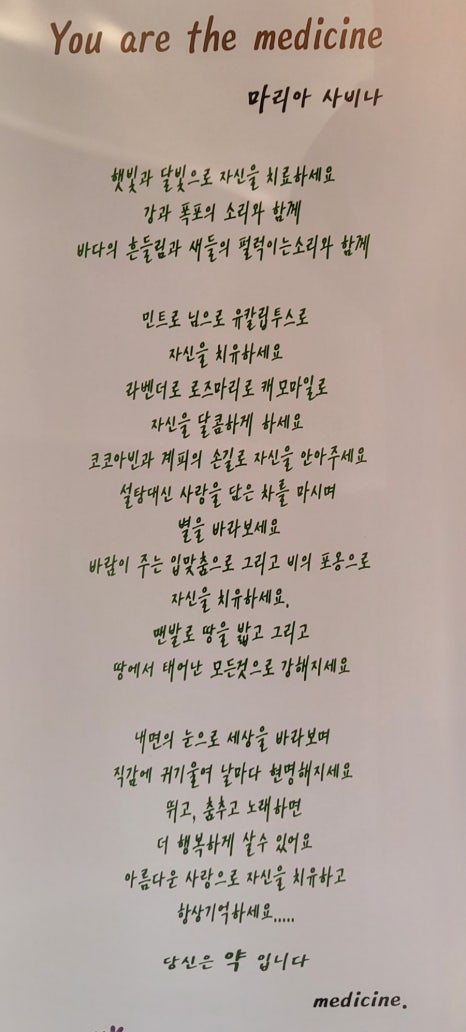 You are the medicine
마리아 사비나
햇빛과 달빛으로 자신을 치료하세요
강과 폭포의 소리와 함께
바다의 흔들림과 새들의 펄럭이는소리와 함께
민트로 님으로 유칼립투스로
자신을 치유하세요
라벤더로 로즈마리로 캐모마일로
자신을 달콤하게 하세요
코코아빈과 계피의 손길로 자신을 안아주세요
설탕대신 사랑을 담은 차를 마시며
별을 바라보세요
바람이 주는 입맞춤으로 그리고 비의 포옹으로
자신을 치유하세요.
맨발로 땅을 밟고 그리고
땅에서 태어난 모든것으로 강해지세요
내면의 눈으로 세상을 바라보며
직감에 귀기울여 날마다 현명해지세요
뛰고, 춤추고 노래하면
더 행복하게 살수 있어요
아름다운 사랑으로 자신을 치유하고
항상기억하세요.....
당신은 약 입니다
medicine.